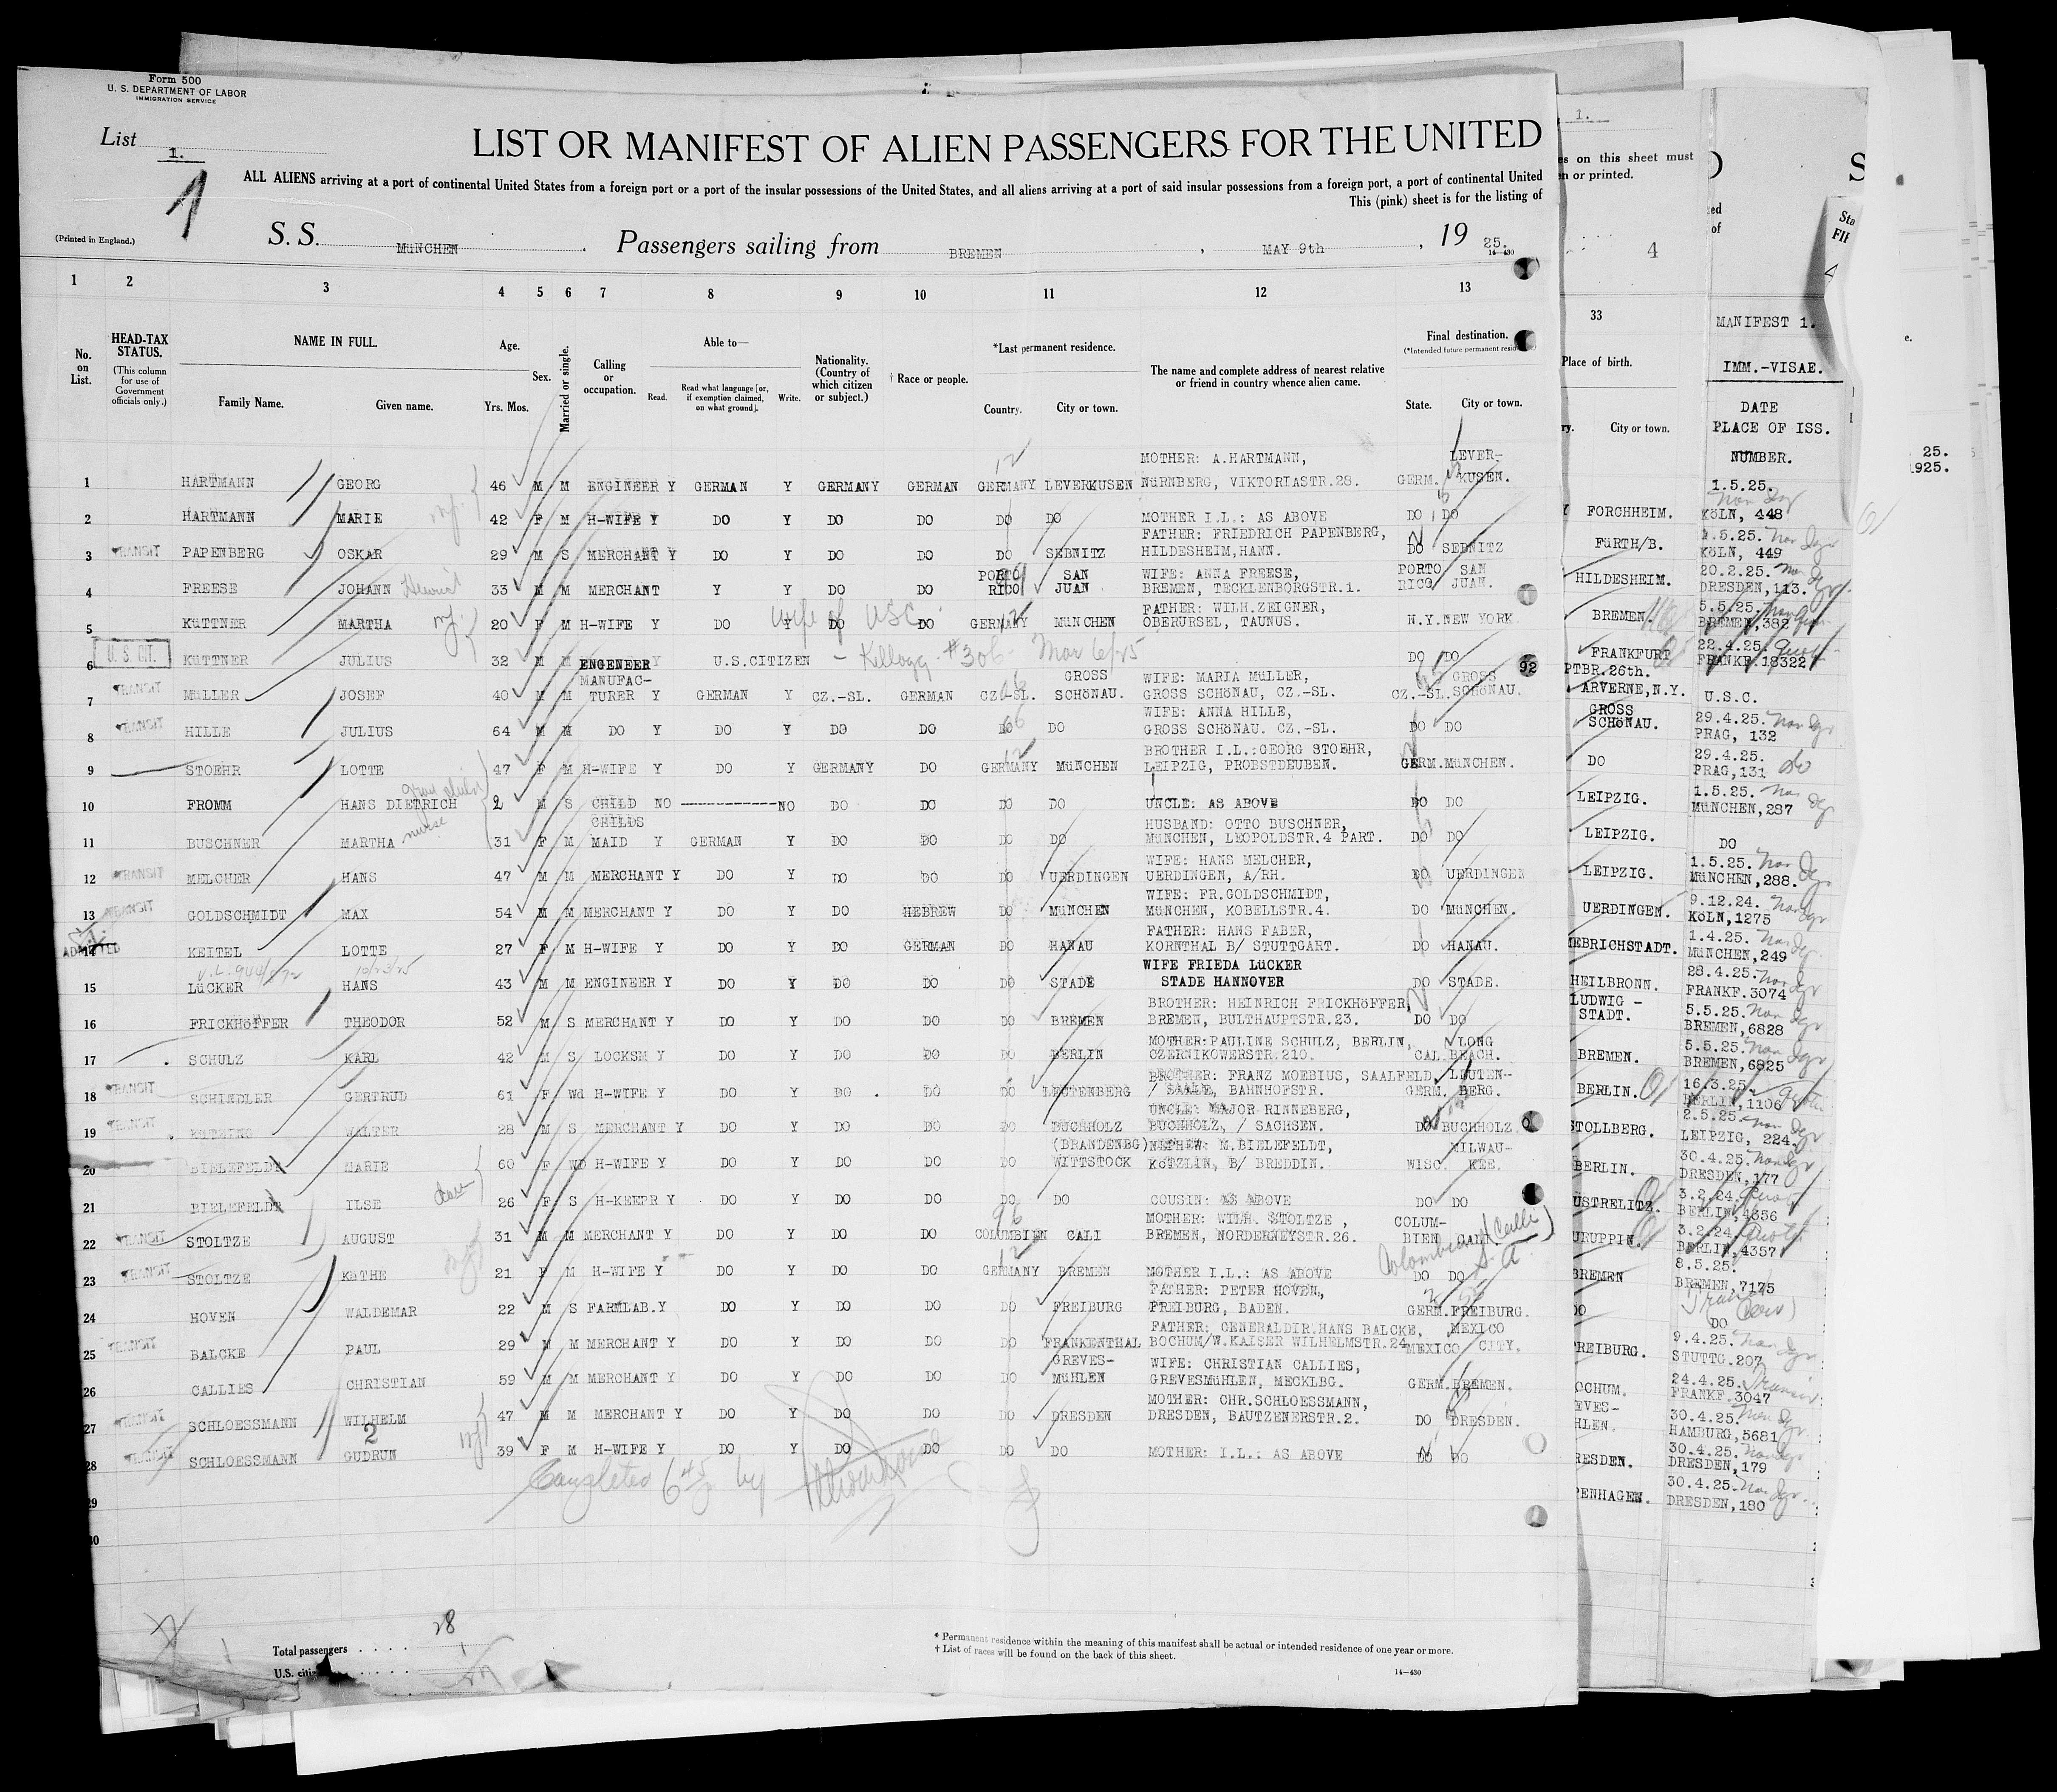 Form 500
U. S. DEPARTMENT OF LABOR
IMMIGRATION SERVICE
List 1.
1
LIST OR MANIFEST OF ALIEN PASSENGERS FOR THE UNITED
ALL ALIENS arriving at a port of continental United States from a foreign port or a port of the insular possessions of the United States, and all aliens arriving at a port of said insular possessions from a foreign port, a port of continental United
This (pink) sheet is for the listing of
(Printed in England.)
S. S. MüNCHEN. Passengers sailing from BREMEN, MAY 9th, 19 25.
14—430
1 2 3 4 5 6 7 8 9 10 11 12 13
No. on List.
HEAD-TAX STATUS.
(This column for use of Government officials only.)
NAME IN FULL.
Family Name. Given name.
Age.
Yrs. Mos.
Sex.
Married or single.
Calling or occupation.
Able to—
Read. Read what language [or, if exemption claimed, on what ground]. Write.
Nationality. (Country of which citizen or subject.)
† Race or people.
*Last permanent residence.
Country. City or town.
The name and complete address of nearest relative or friend in country whence alien came.
Final destination.
State. City or town.
1 HARTMANN GEORG 46 M M ENGINEER Y GERMAN Y GERMANY GERMAN GERMANY LEVERKUSEN MOTHER: A.HARTMANN, NüRNBERG, VIKTORIASTR.28. GERM. LEVER-KUSEN.
2 HARTMANN MARIE 42 F M H-WIFE Y DO Y DO DO DO DO MOTHER I.L.: AS ABOVE DO DO
3 TRANSIT PAPENBERG OSKAR 29 M S MERCHANT Y DO Y DO DO DO SEBNITZ FATHER: FRIEDRICH PAPENBERG, HILDESHEIM,HANN. DO SEBNITZ
4 FREESE JOHANN 33 M M MERCHANT Y Y DO DO PORTO RICO SAN JUAN WIFE: ANNA FREESE, BREMEN, TECKLENBORGSTR.1. PORTO RICO SAN JUAN.
wife of USC.
5 KüTTNER MARTHA 20 F M H-WIFE Y DO Y DO DO GERMANY MüNCHEN FATHER: WILH.ZEIGNER, OBERURSEL, TAUNUS. N.Y. NEW YORK.
6 U. S. CIT. KüTTNER JULIUS 32 M M ENGENEER Y U.S.CITIZEN - Kellogg #306 - Mar 6/25 DO DO
7 TRANSIT MüLLER JOSEF 40 M M MANUFAC-TURER Y GERMAN Y CZ.-SL. GERMAN CZ.-SL. GROSS SCHöNAU. WIFE: MARIA MüLLER, GROSS SCHöNAU, CZ.-SL. CZ.-SL. GROSS SCHöNAU.
8 TRANSIT HILLE JULIUS 64 M M DO Y DO Y DO DO DO DO WIFE: ANNA HILLE, GROSS SCHöNAU. CZ.-SL. DO DO
9 STOEHR LOTTE 47 F M H-WIFE Y DO Y GERMANY DO GERMANY MüNCHEN BROTHER I.L.:GEORG STOEHR, LEIPZIG, PROBSTDEUBEN. GERM. MüNCHEN.
10 FROMM HANS DIETRICH 2 M S CHILD NO NO DO DO DO DO UNCLE: AS ABOVE DO DO
11 BUSCHNER MARTHA nurse 31 F M CHILDS MAID Y GERMAN Y DO DO DO DO HUSBAND: OTTO BUSCHNER, MüNCHEN, LEOPOLDSTR.4 PART. DO DO
12 TRANSIT MELCHER HANS 47 M M MERCHANT Y DO Y DO DO DO UERDINGEN WIFE: HANS MELCHER, UERDINGEN, A/RH. DO UERDINGEN
13 TRANSIT GOLDSCHMIDT MAX 54 M M MERCHANT Y DO Y DO HEBREW DO MüNCHEN WIFE: FR.GOLDSCHMIDT, MüNCHEN, KOBELLSTR.4. DO MüNCHEN.
14 ADMITTED KEITEL LOTTE 27 F M H-WIFE Y DO Y DO GERMAN DO HANAU FATHER: HANS FABER, KORNTHAL B/ STUTTGART. DO HANAU.
15 LüCKER HANS 43 M M ENGINEER Y DO Y DO DO DO STADE WIFE FRIEDA LüCKER STADE HANNOVER DO STADE.
16 FRICKHöFFER THEODOR 52 M S MERCHANT Y DO Y DO DO DO BREMEN BROTHER: HEINRICH FRICKHöFFER, BREMEN, BULTHAUPTSTR.23. DO DO
17 SCHULZ KARL 42 M S LOCKSM Y DO Y DO DO DO BERLIN MOTHER:PAULINE SCHULZ, BERLIN, CZERNIKOWERSTR.210. CAL. LONG BEACH.
18 TRANSIT SCHINDLER GERTRUD 61 F Wd H-WIFE Y DO Y DO DO DO LEUTENBERG BROTHER: FRANZ MOEBIUS, SAALFELD / SAALE, BAHNHOFSTR. GERM. LEUTEN-BERG.
19 TRANSIT WALTER 28 M S MERCHANT Y DO Y DO DO DO BUCHHOLZ UNCLE: MAJOR RINNEBERG, BUCHHOLZ, / SACHSEN. DO BUCHHOLZ
20 BIELEFELDT MARIE 60 F WD H-WIFE Y DO Y DO DO DO (BRANDENBG) WITTSTOCK NEPHEW: M.BIELEFELDT, KöTZLIN, B/ BREDDIN. WISC. MILWAU-KEE.
21 BIELEFELDT ILSE 26 F S H-KEEPR Y DO Y DO DO DO DO COUSIN: AS ABOVE DO DO
22 TRANSIT STOLTZE AUGUST 31 M M MERCHANT Y DO Y DO DO COLUMBIEN CALI MOTHER: WILH. STOLTZE, BREMEN, NORDERNEYSTR.26. COLUM-BIEN CALI
Colombiana (Calle) S. A.
23 TRANSIT STOLTZE KäTHE 21 F M H-WIFE Y DO Y DO DO GERMANY BREMEN MOTHER I.L.: AS ABOVE DO DO
24 HOVEN WALDEMAR 22 M S FARMLAB. Y DO Y DO DO DO FREIBURG FATHER: PETER HOVEN, FREIBURG, BADEN. GERM. FREIBURG.
25 TRANSIT BALCKE PAUL 29 M M MERCHANT Y DO Y DO DO DO FRANKENTHAL FATHER: GENERALDIR.HANS BALCKE, BOCHUM/W.KAISER WILHELMSTR.24 MEXICO MEXICO CITY.
26 CALLIES CHRISTIAN 59 M M MERCHANT Y DO Y DO DO DO GREVES-MüHLEN WIFE: CHRISTIAN CALLIES, GREVESMüHLEN, MECKLBG. GERM. BREMEN.
27 TRANSIT SCHLOESSMANN WILHELM 47 M M MERCHANT Y DO Y DO DO DO DRESDEN MOTHER: CHR.SCHLOESSMANN, DRESDEN, BAUTZENERSTR.2. DO DRESDEN.
2
28 TRANSIT SCHLOESSMANN GUDRUN 39 F M H-WIFE Y DO Y DO DO DO DO MOTHER: I.L.: AS ABOVE DO DO
29
30
Completed 6 45 by
Total passengers . . . . 28
U.S. citi 1
27
* Permanent residence within the meaning of this manifest shall be actual or intended residence of one year or more.
† List of races will be found on the back of this sheet.
14—430
92
1.
es on this sheet must
n or printed.
4
33
Place of birth.
City or town.
FORCHHEIM.
FüRTH/B.
HILDESHEIM.
BREMEN.
FRANKFURT
PTBR.26th.
ARVERNE,N.Y.
GROSS SCHöNAU.
DO
LEIPZIG.
LEIPZIG.
LEIPZIG.
UERDINGEN.
EBRICHSTADT.
HEILBRONN.
LUDWIG-STADT.
BREMEN.
BERLIN.
STOLLBERG.
BERLIN.
USTRELITZ.
URUPPIN.
BREMEN
DO
REIBURG.
OCHUM.
EVES-
HLEN.
RESDEN.
PENHAGEN.
MANIFEST 1.
IMM.-VISAE.
DATE
PLACE OF ISS.
NUMBER.
1.5.25.
KöLN, 448
1.5.25.
KöLN, 449
20.2.25.
DRESDEN,113.
5.5.25.
BREMEN,382
22.4.25. Quota
FRANKF.18322
U.S.C.
29.4.25.
PRAG, 132
29.4.25.
PRAG,131 do
1.5.25.
MüNCHEN,287
DO
1.5.25.
MüNCHEN,288.
9.12.24.
KöLN,1275
1.4.25.
MüNCHEN,249
28.4.25.
FRANKF.3074
5.5.25.
BREMEN,6828
5.5.25.
BREMEN,6825
16.3.25. Quota
BERLIN,1106
2.5.25.
LEIPZIG, 224.
30.4.25.
DRESDEN,177
3.2.24. Quota
BERLIN,4356
3.2.24. Quota
BERLIN,4357
8.5.25.
BREMEN,7175
DO
9.4.25.
STUTTG.207
24.4.25. Transit
FRANKF.3047
30.4.25.
HAMBURG,5681
30.4.25.
DRESDEN,179
30.4.25.
DRESDEN,180
25.
1925.